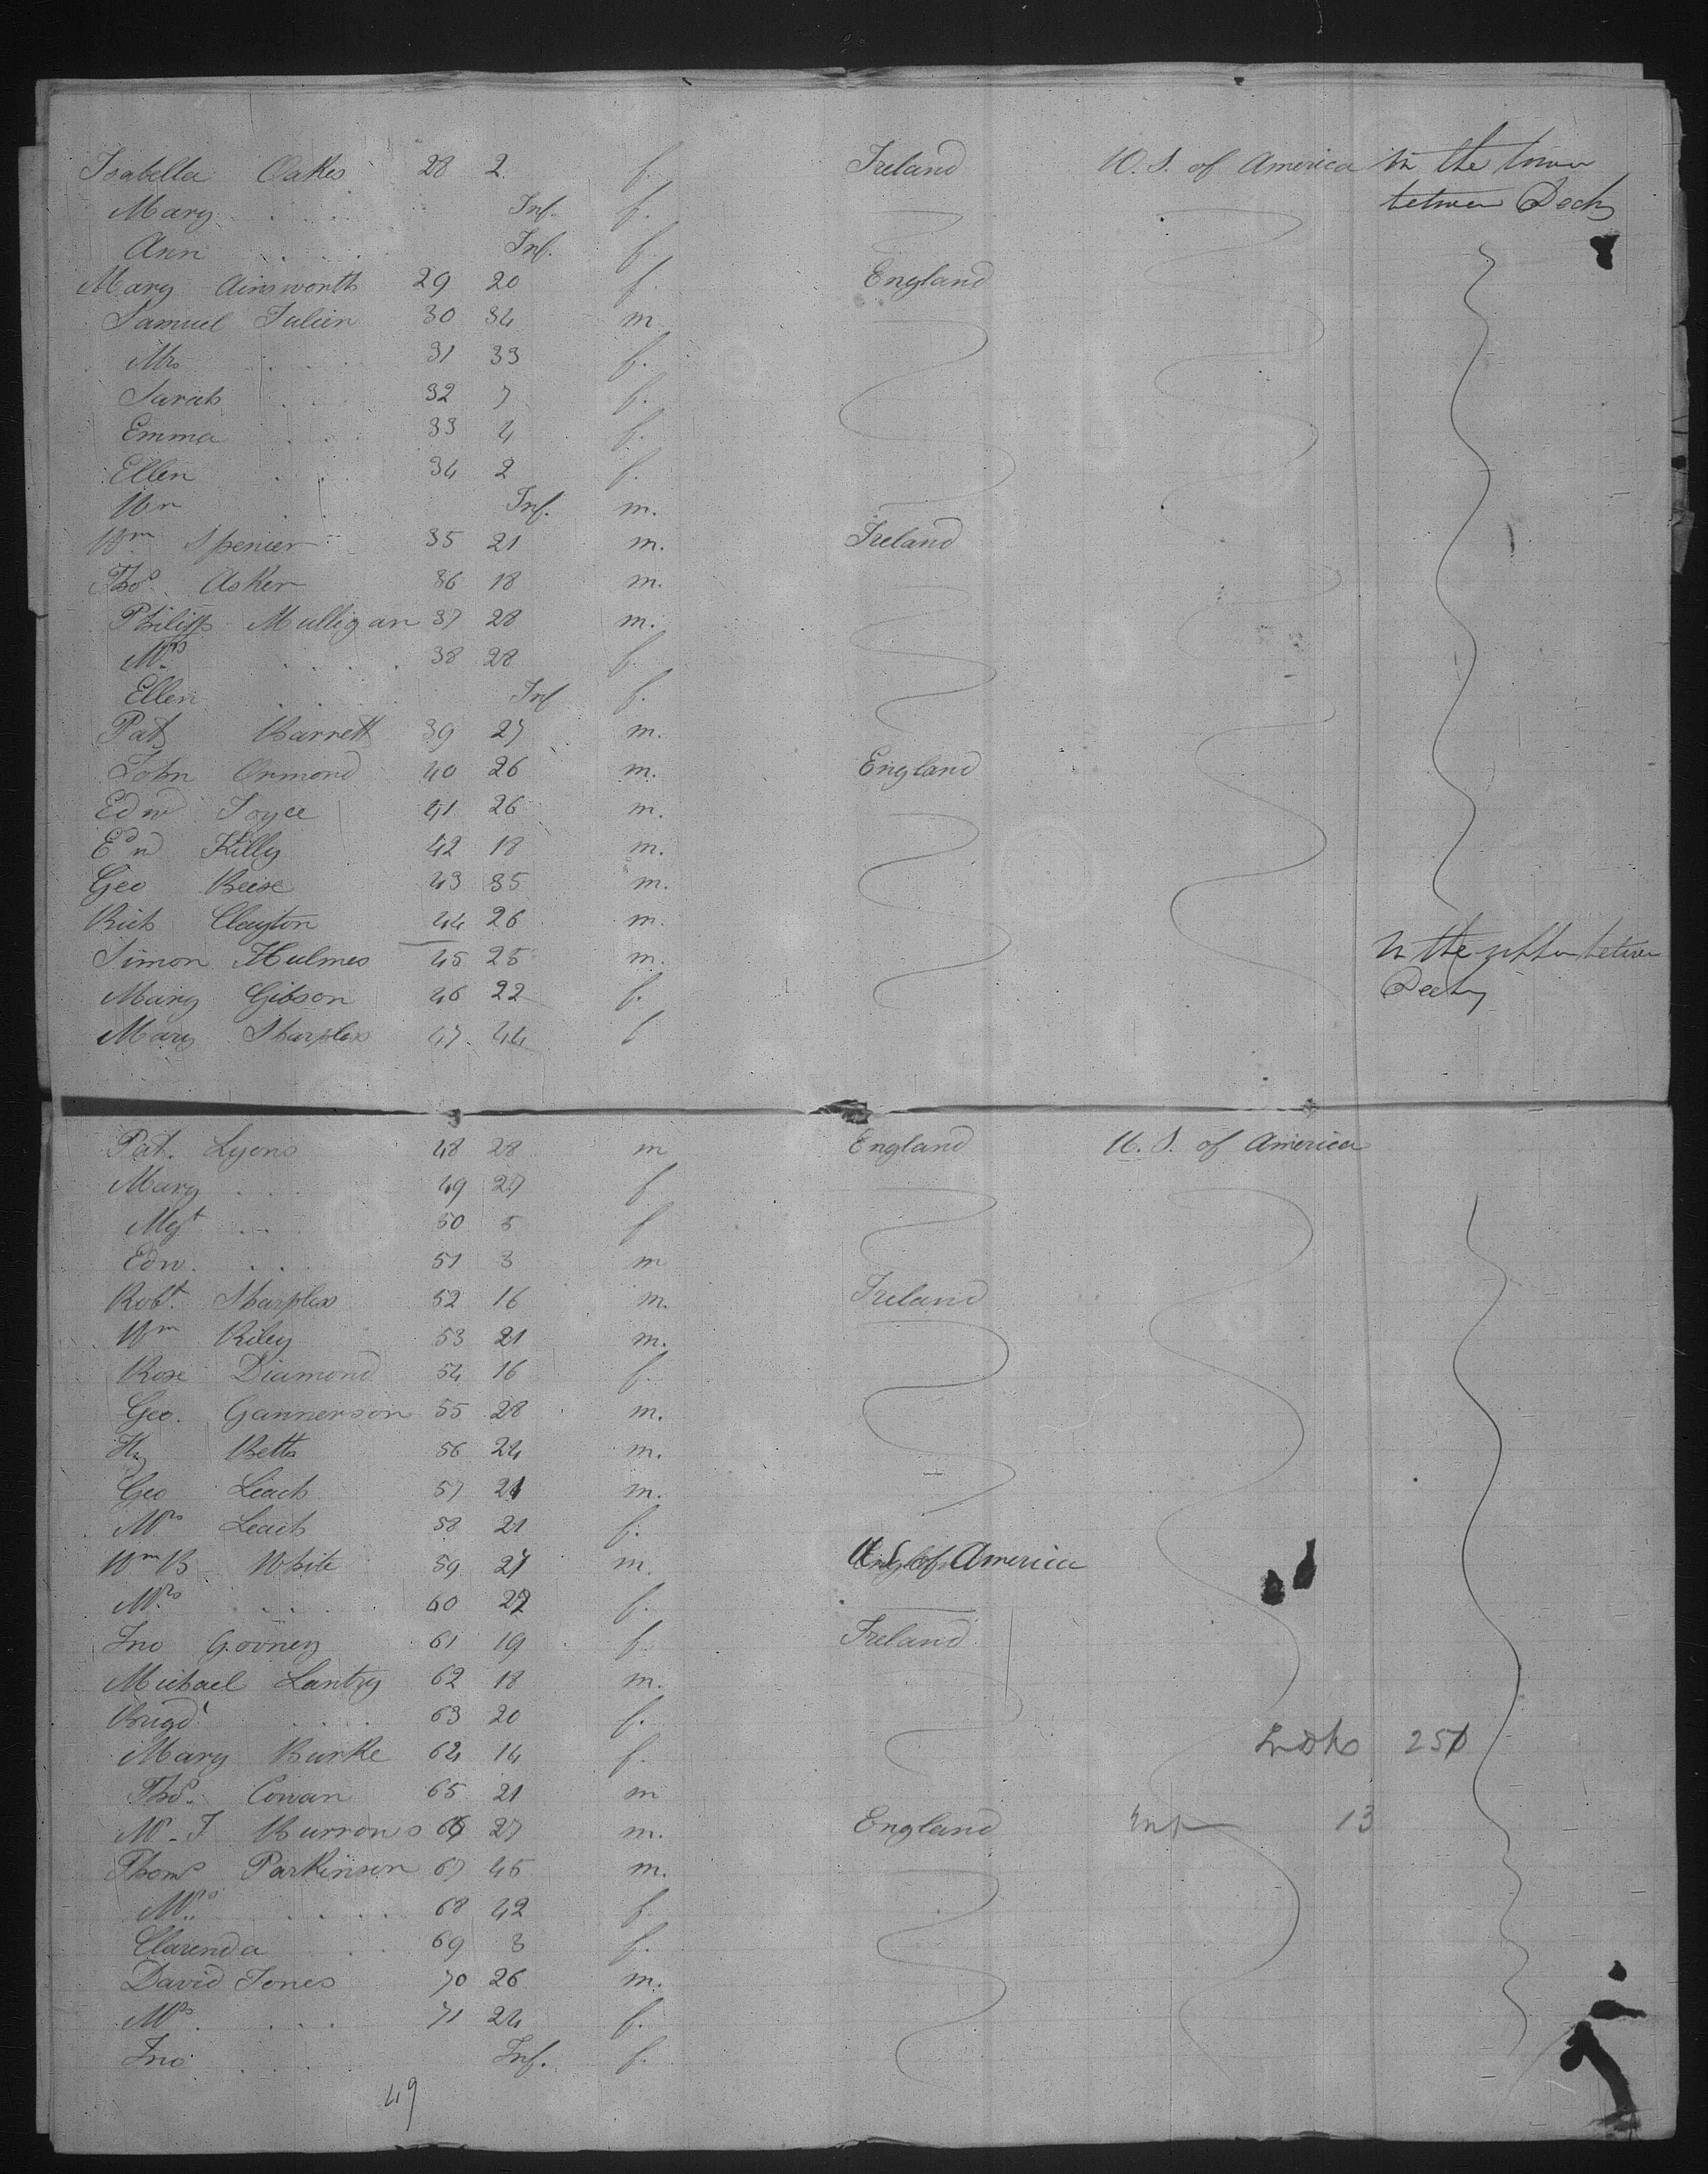 Isabella Oakes 28 2 f. Ireland U.S. of America in the lower
Mary . . . . Inf. f. between Decks
Ann . . . . Inf. f.
Mary Ainsworth 29 20 f. England
Samuel Julien 30 34 m
Mrs . . . . 31 33 f.
Sarah . . . 32 7 f.
Emma . . . 33 4 f.
Ellen . . . 34 2 f.
Wm . . . Inf. m.
Wm Spencer 35 21 m. Ireland
Thos. Asker 36 18 m.
Philip Mulligan 37 28 m.
Mrs . . . . 38 28 f.
Ellen . . . Inf f.
Pat Barrett 39 27 m.
John Ormond 40 26 m. England
Edwd Joyce 41 26 m.
Edw Killy 42 18 m.
Geo Reise 43 35 m.
Rich Clayton 44 26 m.
Simon Hulmes 45 25 m. in the upper between
Mary Gibson 46 22 f. Decks
Mary Sharples 47 44 f
Pat. Lyons 48 28 m England U.S. of America
Mary . . . 49 27 f
Mgt . . . 50 5 f
Edw. . . . 51 3 m
Robt. Sharples 52 16 m. Ireland
Wm Riley 53 21 m.
Rose Diamond 54 16 f.
Geo. Gannerson 55 28 m.
Hy Betts 56 24 m.
Geo Leach 57 21 m.
Mrs Leach 58 21 f.
Wm B White 59 27 m. U.S. of America
Mrs . . . . 60 22 f.
Jno Govney 61 19 f Ireland
Michael Lantry 62 18 m.
Brigdt . . . . 63 20 f.
Mary Burke 64 14 f. 251
Thos. Cowan 65 21 m
Mr J Burrows 66 27 m. England Inf 13
Thoms Parkinson 67 45 m.
Mrs . . . . 68 42 f.
Clarenda . . . 69 3 f.
David Jones 70 26 m.
Mrs. . . . 71 24 f.
Jno . . . . Inf. f.
49